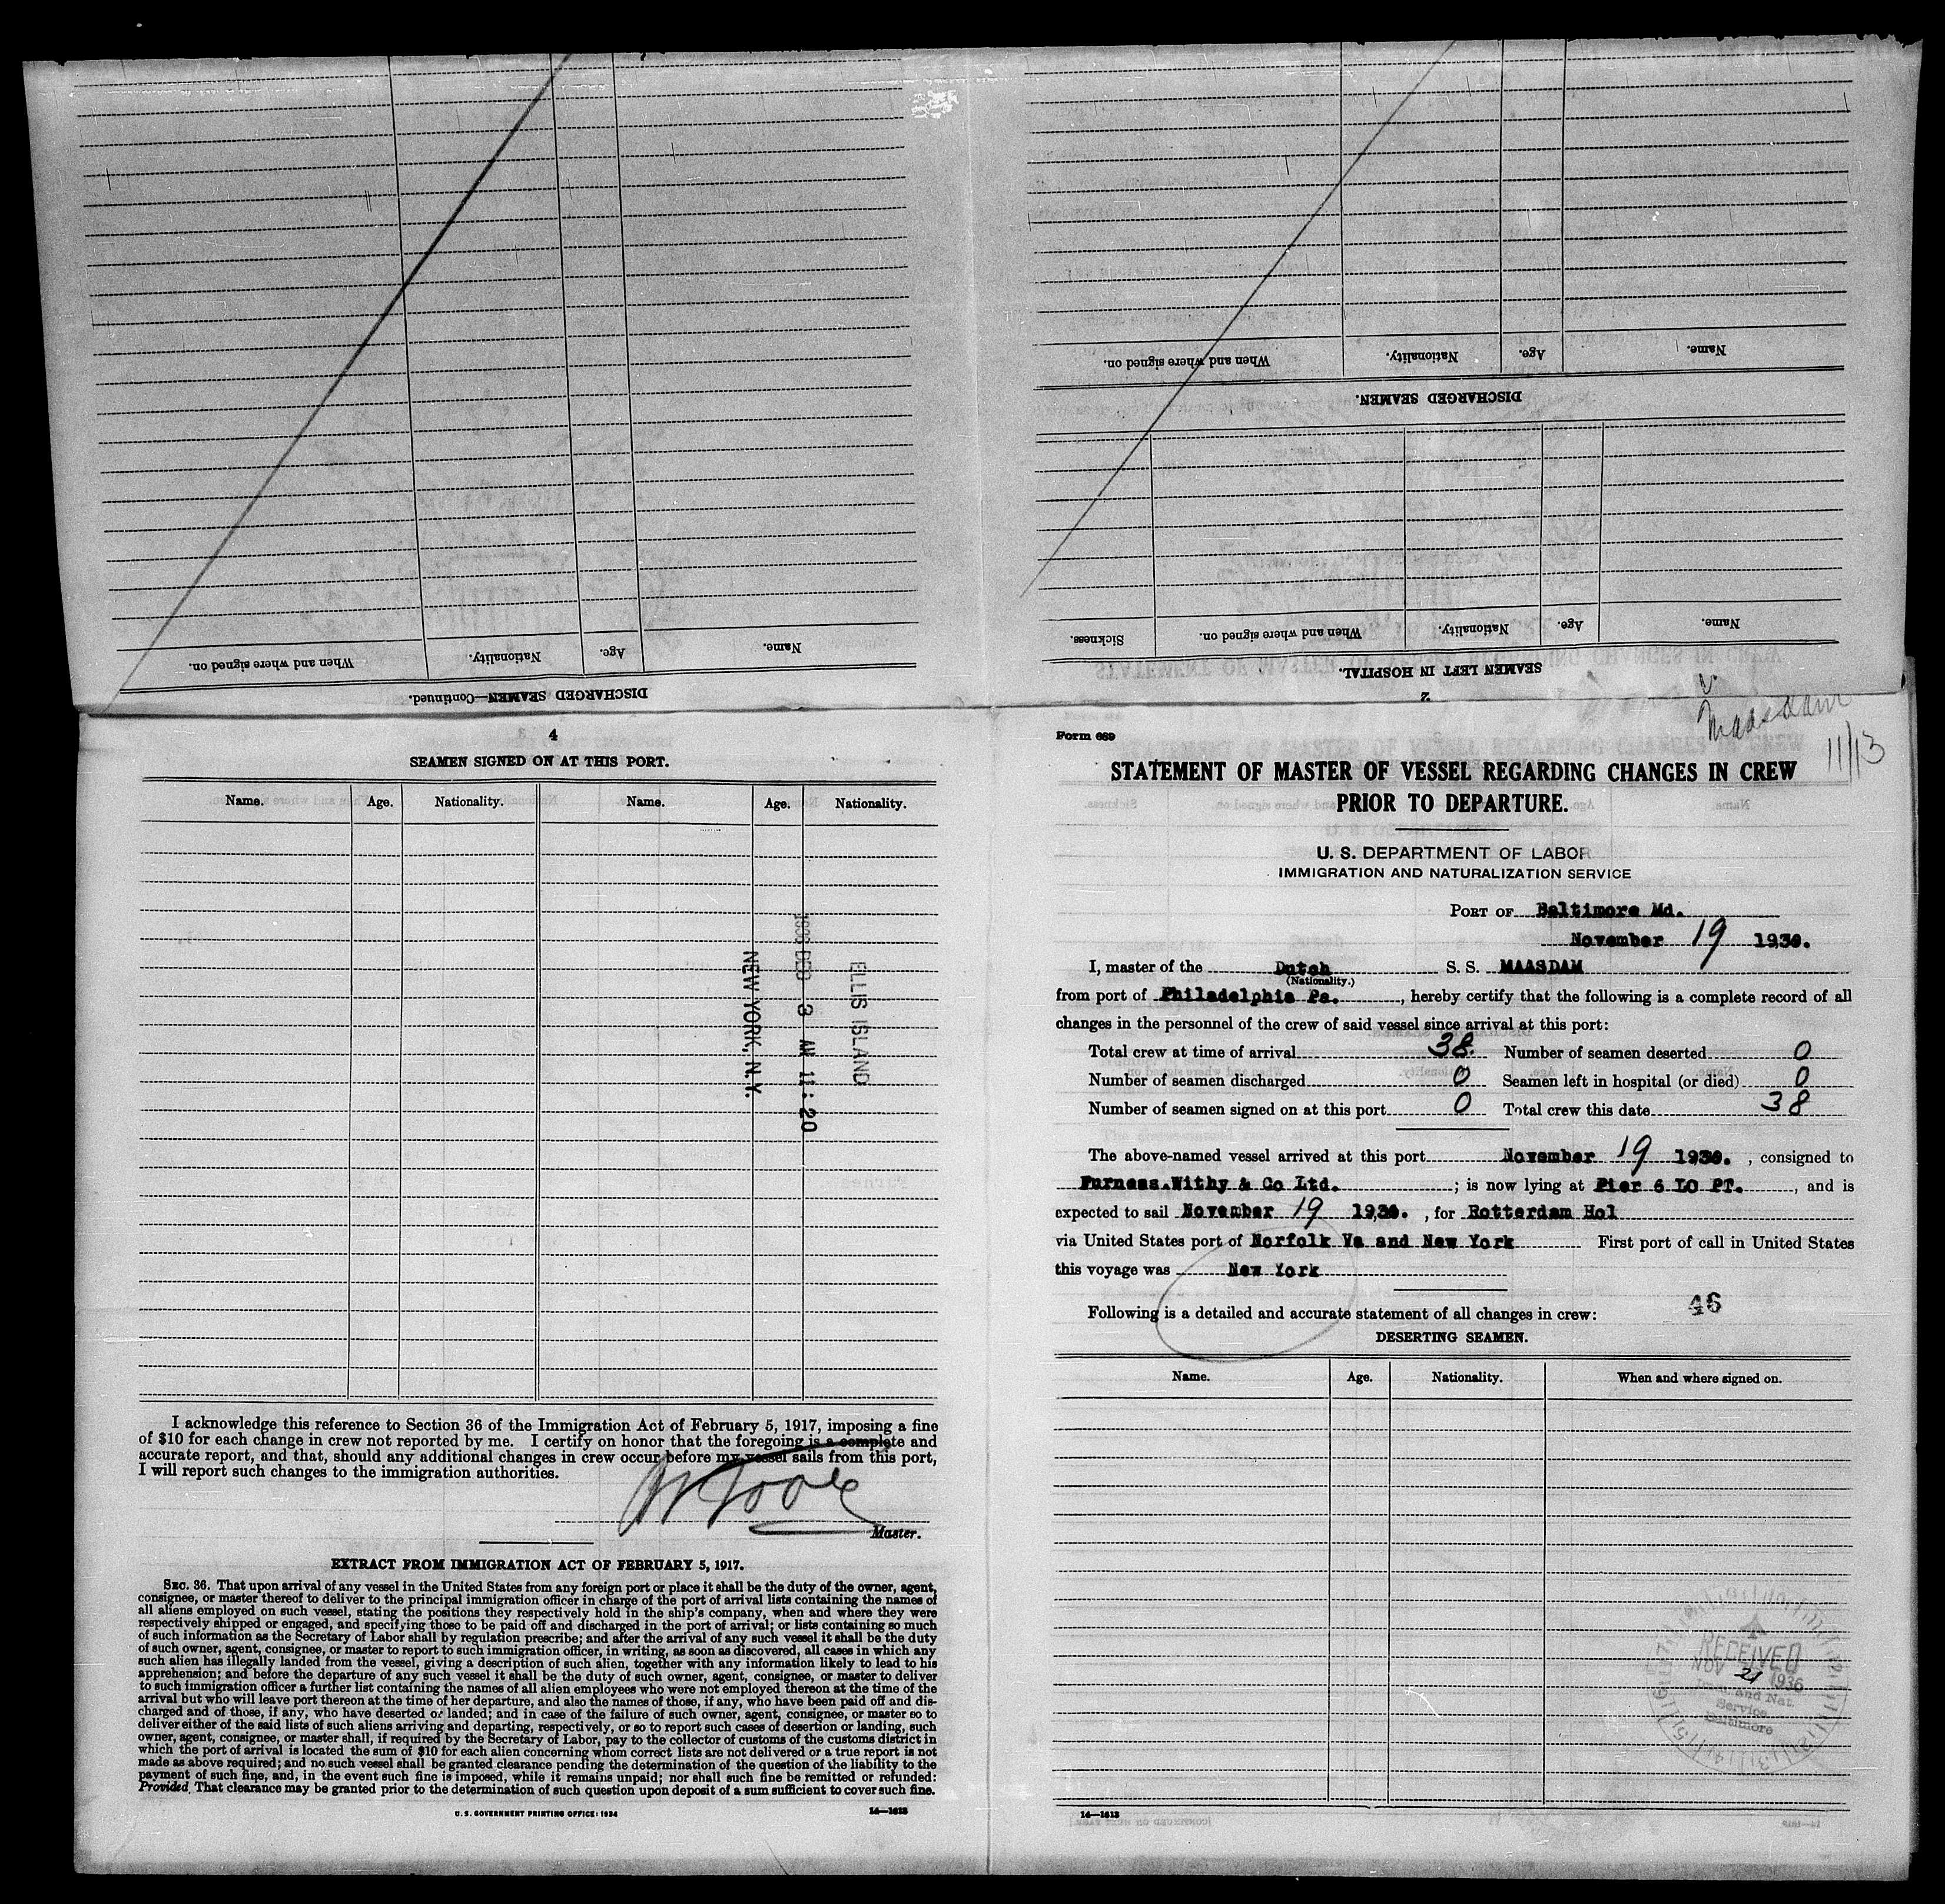 When and where signed on.
Nationality.
Age.
Name.
DISCHARGED SEAMEN—Continued.
Name.
Age.
Nationality.
When and where signed on.
DISCHARGED SEAMEN.
Name.
Age.
Nationality.
When and where signed on.
Sickness.
SEAMEN LEFT IN HOSPITAL.
2
4
SEAMEN SIGNED ON AT THIS PORT.
Name. Age. Nationality. Name. Age. Nationality.
ELLIS ISLAND
1936 DEC 3 AM 11:20
NEW YORK, N.Y.
I acknowledge this reference to Section 36 of the Immigration Act of February 5, 1917, imposing a fine
of $10 for each change in crew not reported by me. I certify on honor that the foregoing is a complete and
accurate report, and that, should any additional changes in crew occur before my vessel sails from this port,
I will report such changes to the immigration authorities.
Master.
EXTRACT FROM IMMIGRATION ACT OF FEBRUARY 5, 1917.
SEC. 36. That upon arrival of any vessel in the United States from any foreign port or place it shall be the duty of the owner, agent,
consignee, or master thereof to deliver to the principal immigration officer in charge of the port of arrival lists containing the names of
all aliens employed on such vessel, stating the positions they respectively hold in the ship's company, when and where they were
respectively shipped or engaged, and specifying those to be paid off and discharged in the port of arrival; or lists containing so much
of such information as the Secretary of Labor shall by regulation prescribe; and after the arrival of any such vessel it shall be the duty
of such owner, agent, consignee, or master to report to such immigration officer, in writing, as soon as discovered, all cases in which any
such alien has illegally landed from the vessel, giving a description of such alien, together with any information likely to lead to his
apprehension; and before the departure of any such vessel it shall be the duty of such owner, agent, consignee, or master to deliver
to such immigration officer a further list containing the names of all alien employees who were not employed thereon at the time of the
arrival but who will leave port thereon at the time of her departure, and also the names of those, if any, who have been paid off and dis-
charged and of those, if any, who have deserted or landed; and in case of the failure of such owner, agent, consignee, or master so to
deliver either of the said lists of such aliens arriving and departing, respectively, or so to report such cases of desertion or landing, such
owner, agent, consignee, or master shall, if required by the Secretary of Labor, pay to the collector of customs of the customs district in
which the port of arrival is located the sum of $10 for each alien concerning whom correct lists are not delivered or a true report is not
made as above required; and no such vessel shall be granted clearance pending the determination of the question of the liability to the
payment of such fine, and, in the event such fine is imposed, while it remains unpaid; nor shall such fine be remitted or refunded:
Provided, That clearance may be granted prior to the determination of such question upon deposit of a sum sufficient to cover such fine.
U.S. GOVERNMENT PRINTING OFFICE: 1934 14—1613
Maasdam
11/13
Form 689
STATEMENT OF MASTER OF VESSEL REGARDING CHANGES IN CREW
PRIOR TO DEPARTURE.
U. S. DEPARTMENT OF LABOR
IMMIGRATION AND NATURALIZATION SERVICE
PORT OF Baltimore Md.
November 19 1936.
I, master of the Dutch S. S. MAASDAM
(Nationality.)
from port of Philadelphia Pa., hereby certify that the following is a complete record of all
changes in the personnel of the crew of said vessel since arrival at this port:
Total crew at time of arrival 38. Number of seamen deserted 0
Number of seamen discharged 0 Seamen left in hospital (or died) 0
Number of seamen signed on at this port 0 Total crew this date 38
The above-named vessel arrived at this port November 19 1936. , consigned to
Furness.Withy & Co Ltd. ; is now lying at Pier 6 LO PT. , and is
expected to sail November 19 1936. , for Rotterdam Hol
via United States port of Norfolk Va and New York First port of call in United States
this voyage was New York
46
Following is a detailed and accurate statement of all changes in crew:
DESERTING SEAMEN.
Name. Age. Nationality. When and where signed on.
RECEIVED
NOV 21 1936
Imm. and Nat.
Service
Baltimore
14—1613